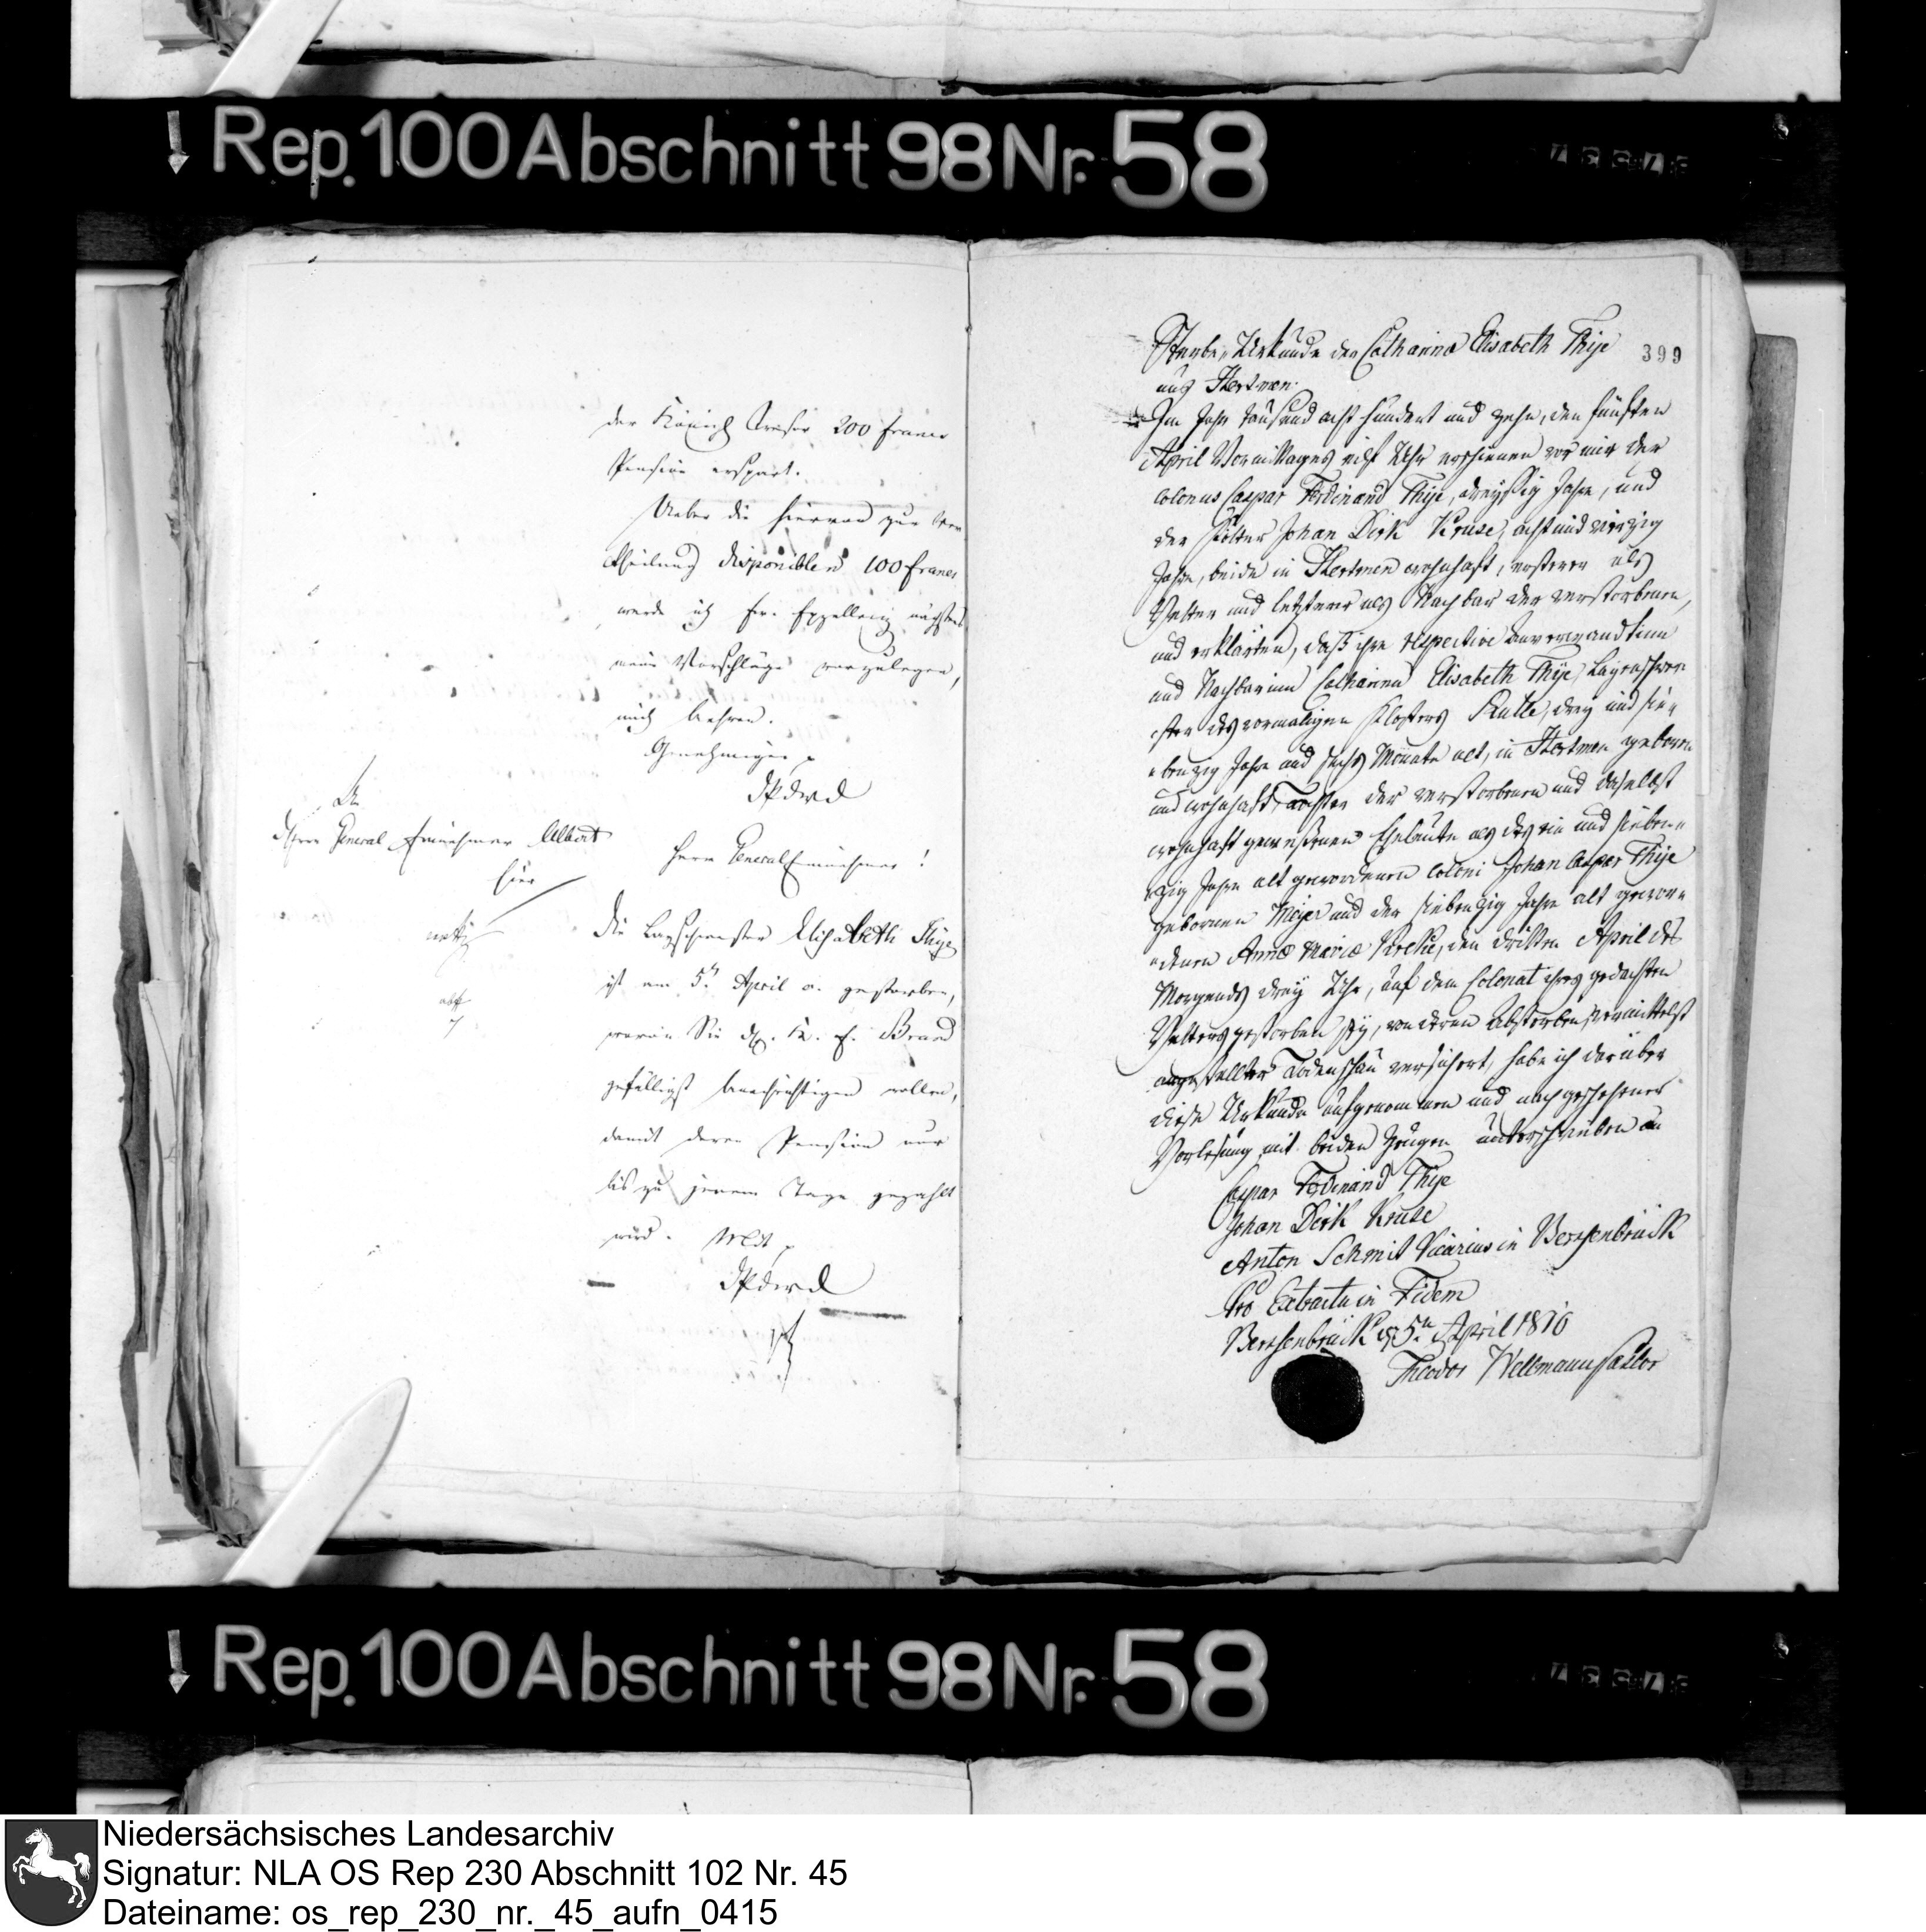 Rep. 100 Abschnitt 98 Nr. 58
der Königl Tresor 200 francs
Pension erspart.
Ueber die hiervon zur Ver
theilung disponiblen 100 francs
werde ich Ew. Exzellenz nächstens
neue Vorschläge vorzulegen,
mich beehren.
Genehmigen
An
Herrn General Einnehmer Albert
hier
Herr General Einnehmer!
Die Layschwester Elisabeth Thije
ist am 5ten April a. gestorben,
wovon Sie den Brand
gefälligst benachrichtigen wollen,
damit deren Pension nur
bis zu jenem Tage gezahlt
wird.
399
Sterbe-Urkunde der Catharina Elisabeth Thije
aus Hertmen.
Im Jahr tausend acht hundert und zehn, den fünften
April Vormittages eilf Uhr erschienen vor mir der
Colonus Caspar Ferdinand Thije, dreyßig Jahr, und
der Johan Dirk Kruse, acht und vierzig
Jahre, beide in Hertmen wohnhaft, ersterer als
Vetter und letzterer als Nachbar der verstorbenen,
und erklärten, daß ihre respective Anverwandtinn
und Nachbarinn Catharina Elisabeth Thije, Layenschwe-
ster des vormaligen Klosters Rulle, drey und sie-
benzig Jahre und sechs Monate alt, in Hertmen geboren
und wohnhaft, Tochter der verstorbenen und daselbst
wohnhaft gewesenen Eheleute als des ein und sieben-
zig Jahre alt gewordenen Coloni Johan Caspar Thije
gebornen Meyer und der siebenzig Jahre alt gewor-
denen Anna Maria, den dritten April des
Morgends drey Uhr, auf dem Colonat ihres gedachten
Vetters gestorben sey, von deren Absterben vermittelst
angestellter Todenschau versichert, habe ich darüber
diese Urkunde aufgenommen und nach geschehener
Vorlesung mit beiden Zeugen unterschrieben
Caspar Ferdinand Thije
Johan Dirk Kruse
Anton Schmit Vicarius in Bersenbrück
Pro Extractu in Fidem
Bersenbrück d. 5ten April 1810
Theodor Wellmann Pastor
Rep. 100 Abschnitt 98 Nr. 58
Niedersächsisches Landesarchiv
Signatur: NLA OS Rep 230 Abschnitt 102 Nr. 45
Dateiname: os_rep_230_nr._45_aufn_0415